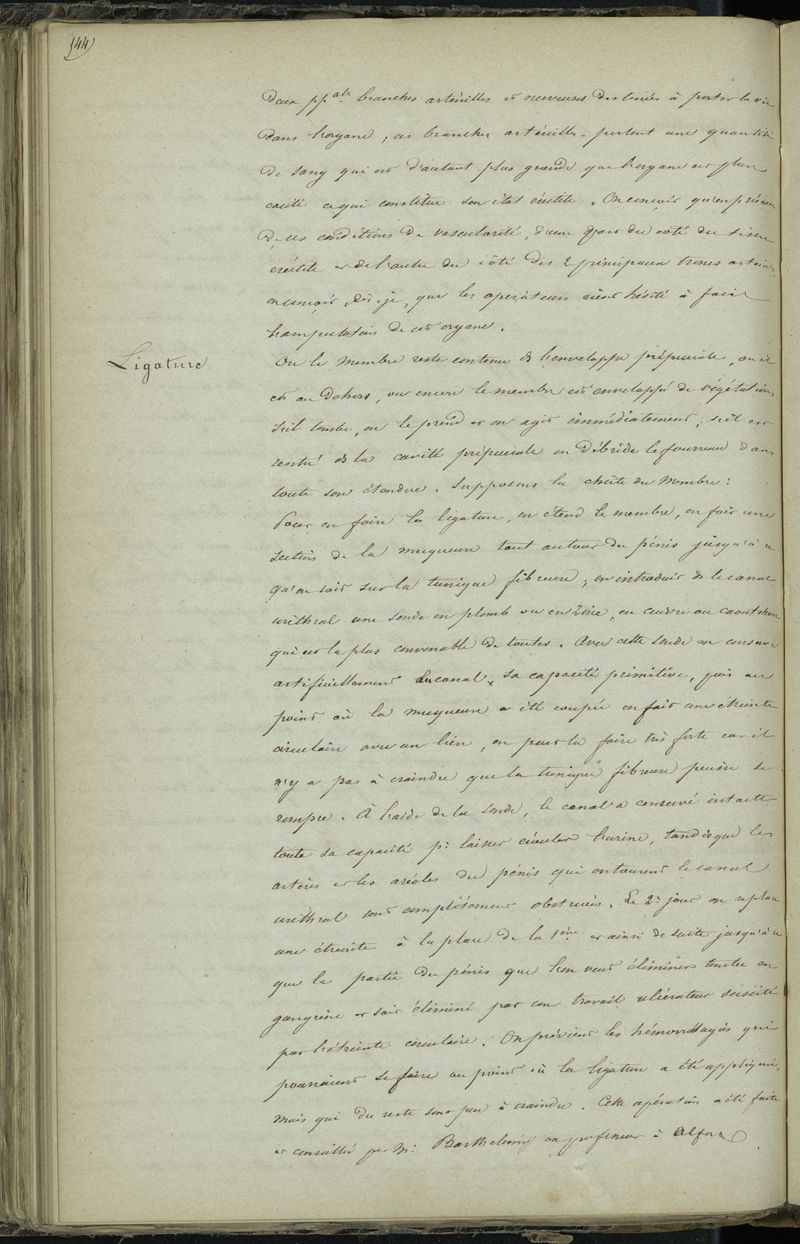 144
deux pp.ales branches artérielles et nerveuses destinées à porter la vie
dans l'organe, ces branches artérielles portent une quantité
de sang qui est d'autant plus grande que l'organe est plus
excité ce qui constitue son état érectile. On conçoit qu'en présence
de ces conditions de vascularité, d'une part du côté du tissu
érectile et de l'autre du côté des 2 principaux troncs artériels,
on conçoit, dis-je, que les opérateurs aient hésité à faire
l'amputation de cet organe.
Ligature
Ou le membre reste contenu ds l'enveloppe prépuciale, ou il
est au dehors, ou encore le membre est enveloppé de végétations
s'il tombe, on le prend et on agit immédiatement, s'il est
rentré ds la cavité prépuciale on débride le fourreau dans
toute son étendue. Supposons la chûte du membre:
Pour en faire la ligature, on étend le membre, on fait une
section de la muqueuse tout autour du pénis jusqu'à ce
qu'on soit sur la tunique fibreuse; on introduit ds le canal
uréthral une sonde en plomb ou en zinc, en cuivre ou caoutchouc
qui est la plus convenable de toutes. Avec cette sonde on conserve
artificiellement au canal sa capacité primitive, puis au
point où la muqueuse a été coupée on fait une étreinte
circulaire avec un lien, on peut la faire très forte car il
n'y a pas à craindre que la tunique fibreuse puisse se
rompre. À l'aide de la sonde, le canal a conservé intacte
toute sa capacité pr laisser écouler l'urine, tandis que les
artères et les aréoles du pénis qui entourent le canal
uréthral sont complètement obstruées. Le 2e jour on replace
une étreinte à la place de la 1ère et ainsi de suite jusqu'à ce
que la partie du pénis que l'on veut éliminer tombe en
gangrène et soit éliminé par un travail ulcérateur suscité
par l'étreinte circulaire. On prévient les hémorrhagies qui
pourraient se faire au point où la ligature a été appliquée,
mais qui du reste sont peu à craindre. Cette opération a été faite
et conseillée par Mr Barthelemy ex professeur à Alfort